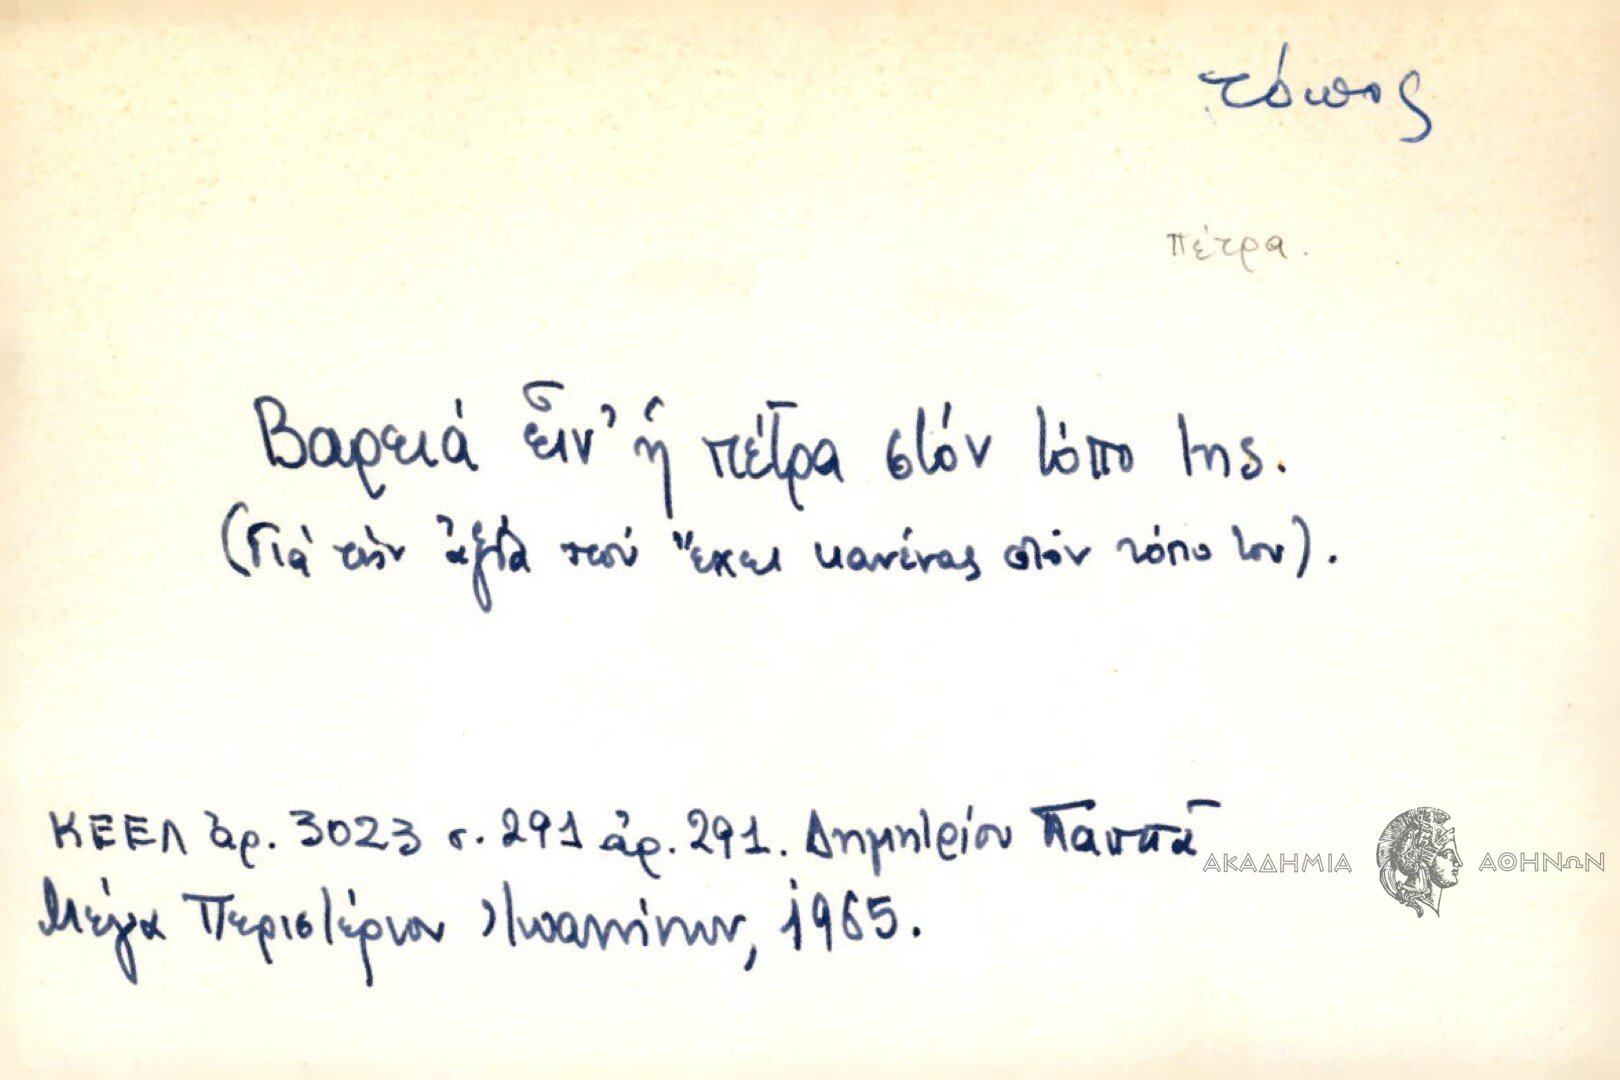 τόπος
πέτρα.
Βαρειά εἶν' ἡ πέτρα στόν τόπο της.
(Γιά τήν ἀξία πού ἔχει κανένας στόν τόπο του).
ΚΕΕΛ ἀρ. 3023 σ. 291 ἀρ. 291. Δημητρίου Παππᾶ
Μέγα Περιστέριον Ἰωαννίνων, 1965.
ΑΚΑΔΗΜΙΑ ΑΘΗΝΩΝ